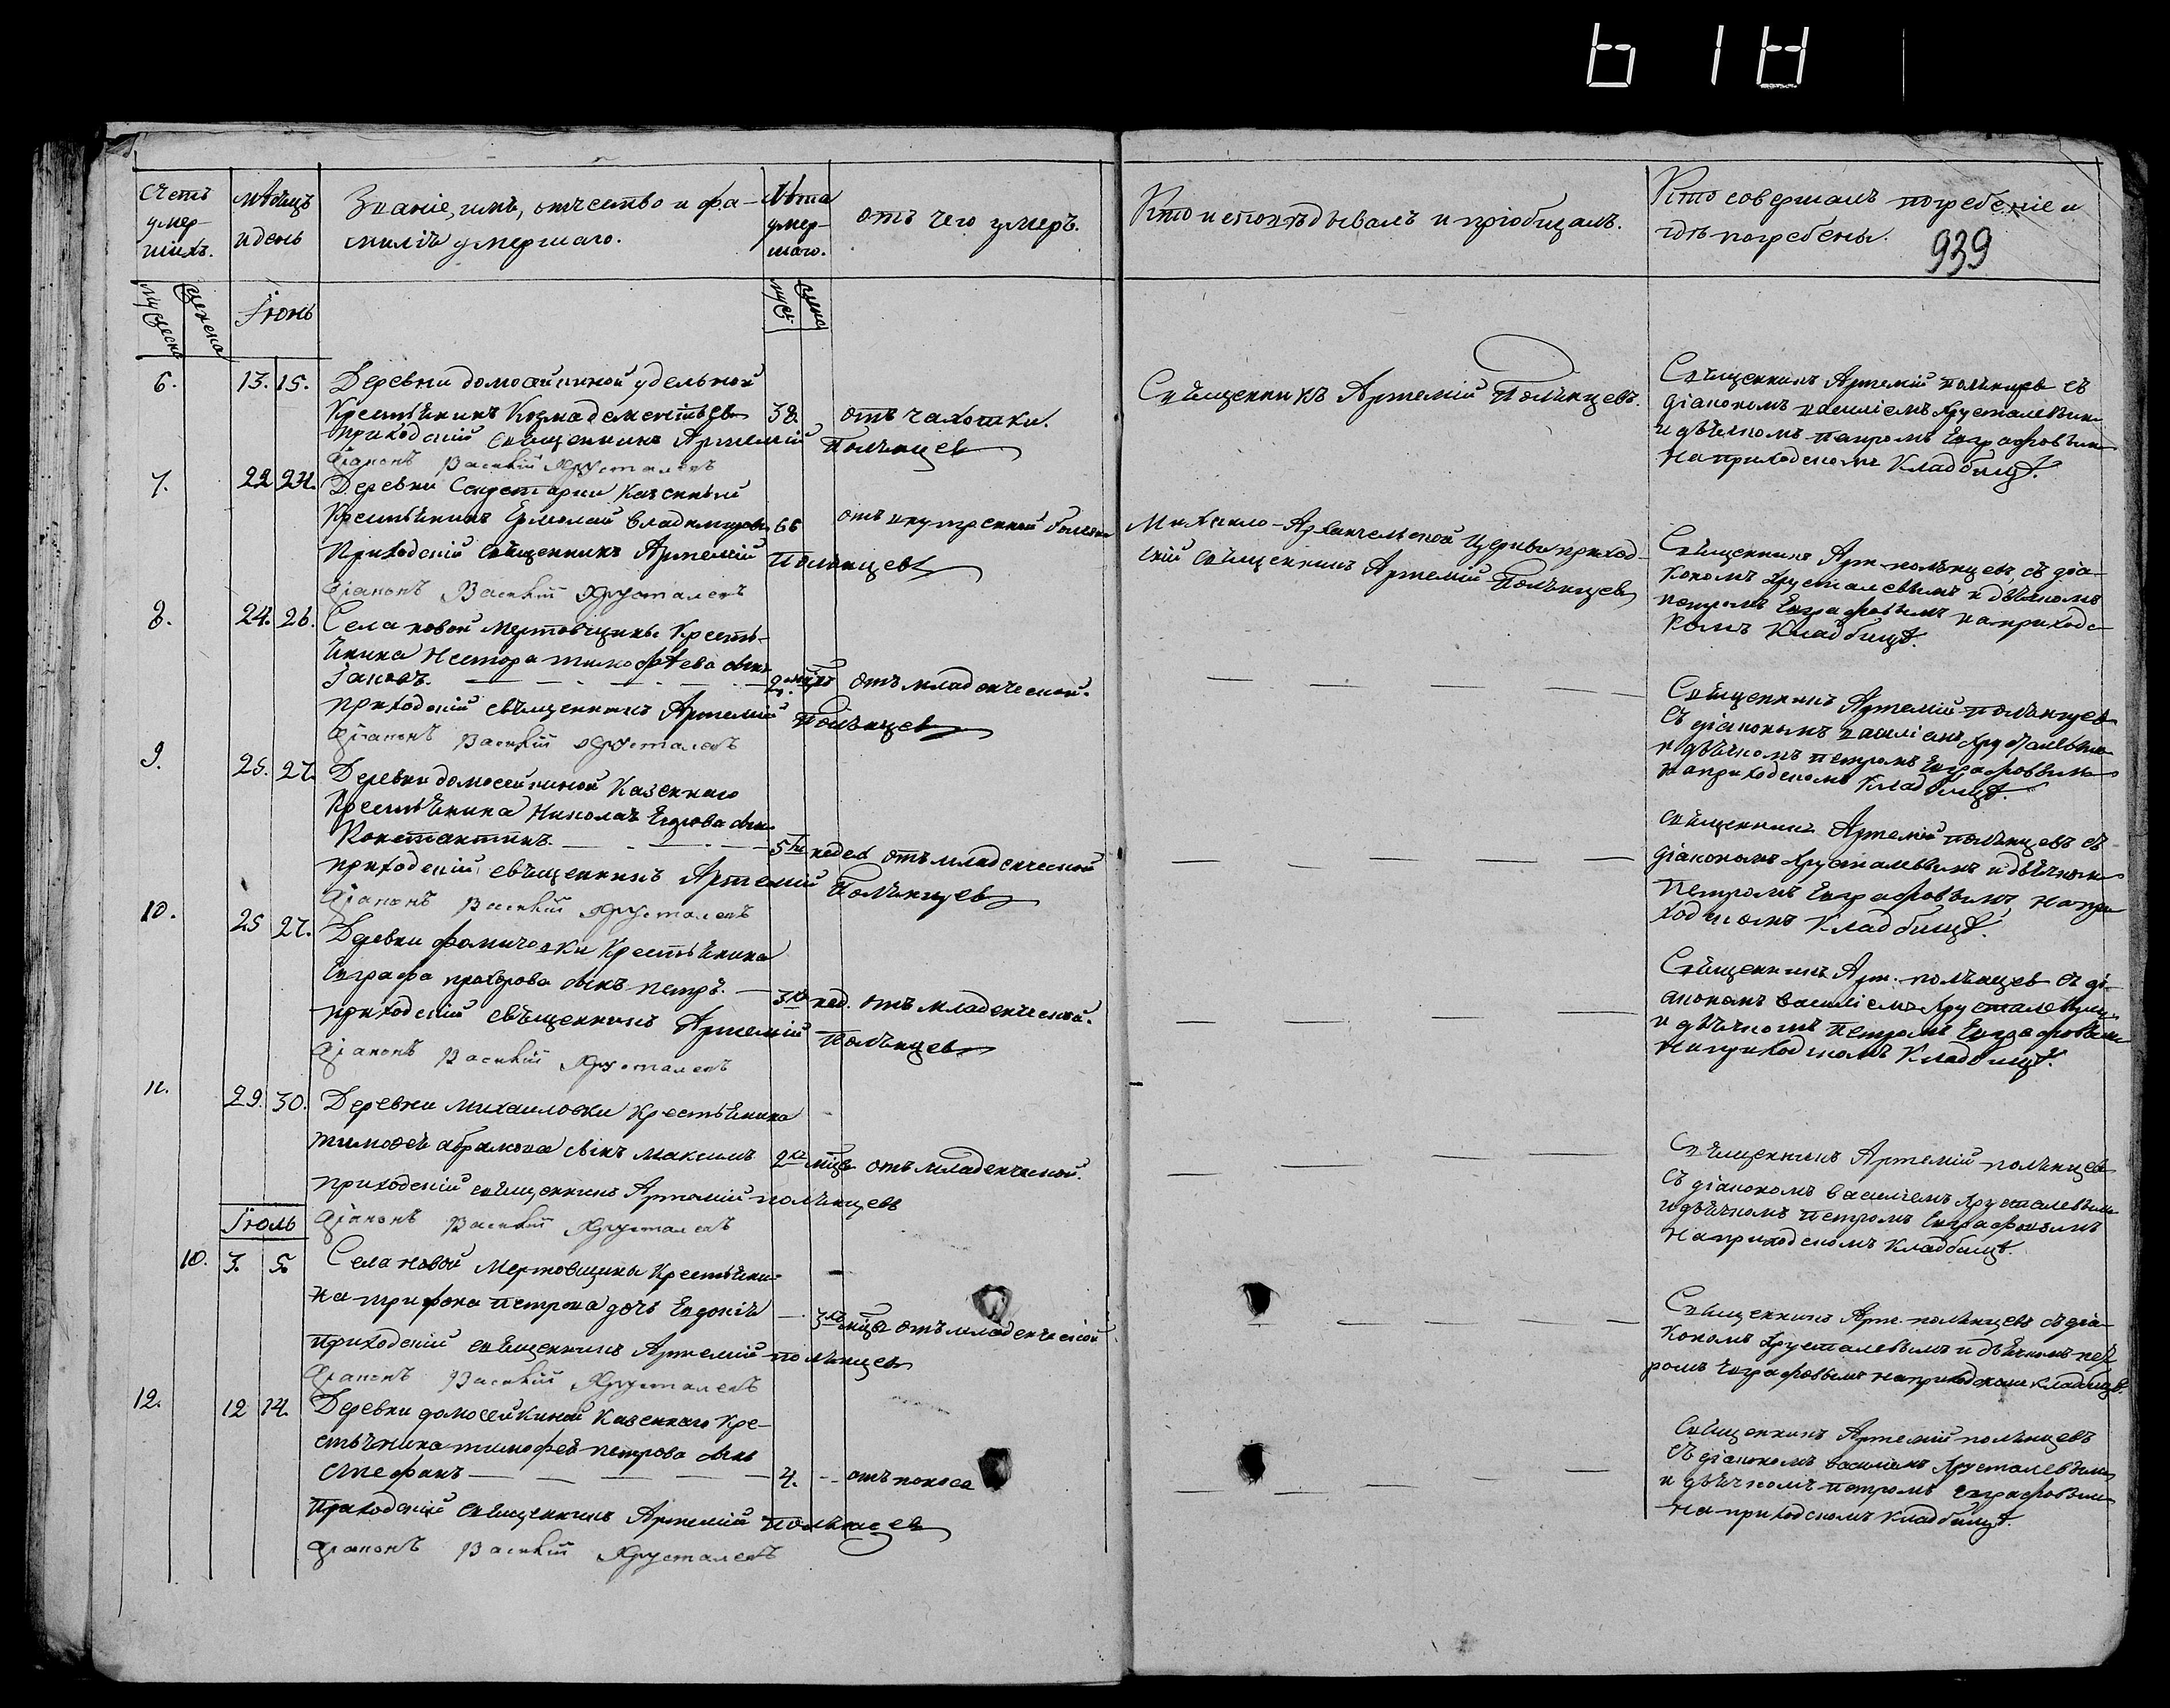 Счетъ умер-шихъ.
мѣсяцъ и день
Званіе, имя, отчество и фа-
милія умершаго.
Лѣта умер-шаго.
отъ чего умеръ.
Кто исповѣдывалъ и пріобщалъ.
Кто совершалъ погребеніе и
гдѣ погребены.
939
Іюнь
6. 13. 15. Деревни домосѣйкиной удельной
Крестьянинъ Козма дементьевъ 38 отъ чахотки.
приходскій священникъ Артемій Полянцев
діаконъ Василій Хрусталевъ
Священникъ Артемій Полянцевъ.
Священникъ Артемій полянцев съ
діакономъ василіемъ Хрусталевым
и дьячкомъ петромъ Евграфовым
на приходскомъ Кладбищѣ.
7. 22 24. Деревни Секретарки Казенный
Крестьянинъ Ермолай владимировъ 66 отъ внутренней болезни
Приходскій священникъ Артемій Полянцевъ
діаконъ Василій Хрусталевъ
Михаило-Архангельской Церкви приход-
скій священникъ Артемій Полянцевъ
Священникъ Арт. полянцевъ, съ діа-
кономъ Хрусталевымъ и дьячкомъ
петромъ Евграфовымъ на приходс-
комъ Кладбищѣ.
8. 24. 26. Села новой Мертовщины Кресть-
янина Нестора тимофѣева сынъ
Іаковъ. 2 отъ младенческой.
приходскій священникъ Артемій Полянцев
діаконъ Василій Хрусталевъ
Священникъ Артемій полянцев
съ діакономъ василіемъ Хрусталевым
и дьячкомъ петромъ Евграфовым
на приходскомъ Кладбищѣ.
9. 25. 27. Деревни домосейкиной Казеннаго
Крестьянина Николая Егорова сынъ
Константинъ. 5ти недел отъ младенческой
приходскій священникъ Артемій Полянцев
діаконъ Василій Хрусталевъ
священникъ Артемій полянцевъ съ
діакономъ Хрусталевымъ и дьячком
Петромъ Евграфовымъ на при-
ходскомъ Кладбищѣ.
10. 25 27. Деревни фомичевки Крестьянина
Евграфа прохорова сынъ петръ. 3хъ нед. отъ младенческой.
приходскій священникъ Артемій Полянцев
діаконъ Василій Хрусталевъ
Священникъ Арт. полянцев съ ді-
акономъ василіемъ Хрусталевым
и дьячкомъ петромъ Евграфовым
на приходскомъ Кладбищѣ.
11. 29. 30. Деревни михаиловки Крестьянина
тимофея абрамова сынъ максимъ 2хъ мѣся отъ младенческой.
приходскій священникъ Артемій полянцевъ
діаконъ Василій Хрусталевъ
Священникъ Артемій полянцев
съ діакономъ василіемъ Хрусталевым
и дьячкомъ петромъ Евграфовымъ
на приходскомъ кладбищѣ.
Іюль
10. 3. 5. Села новой Мертовщины Крестьяни-
на трифона петрова дочь Евдокія 3хъ мѣся отъ младенческой
приходскій священникъ Артемій полянцевъ
діаконъ Василій Хрусталевъ
Священникъ Арт. полянцевъ съ діа-
кономъ Хрусталевымъ и дьячкомъ пет-
ромъ Евграфовымъ на приходскомъ кладбищѣ.
12. 12 14. Деревни домосейкиной Казеннаго Кре-
стьянина тимофея петрова сынъ
Стефанъ 4. отъ поноса
Приходскій священникъ Артемій Полянцев
діаконъ Василій Хрусталевъ
Священникъ Артемій полянцевъ
съ діакономъ василіемъ Хрусталевымъ
и дьячкомъ петромъ Евграфовым
на приходскомъ кладбищѣ.